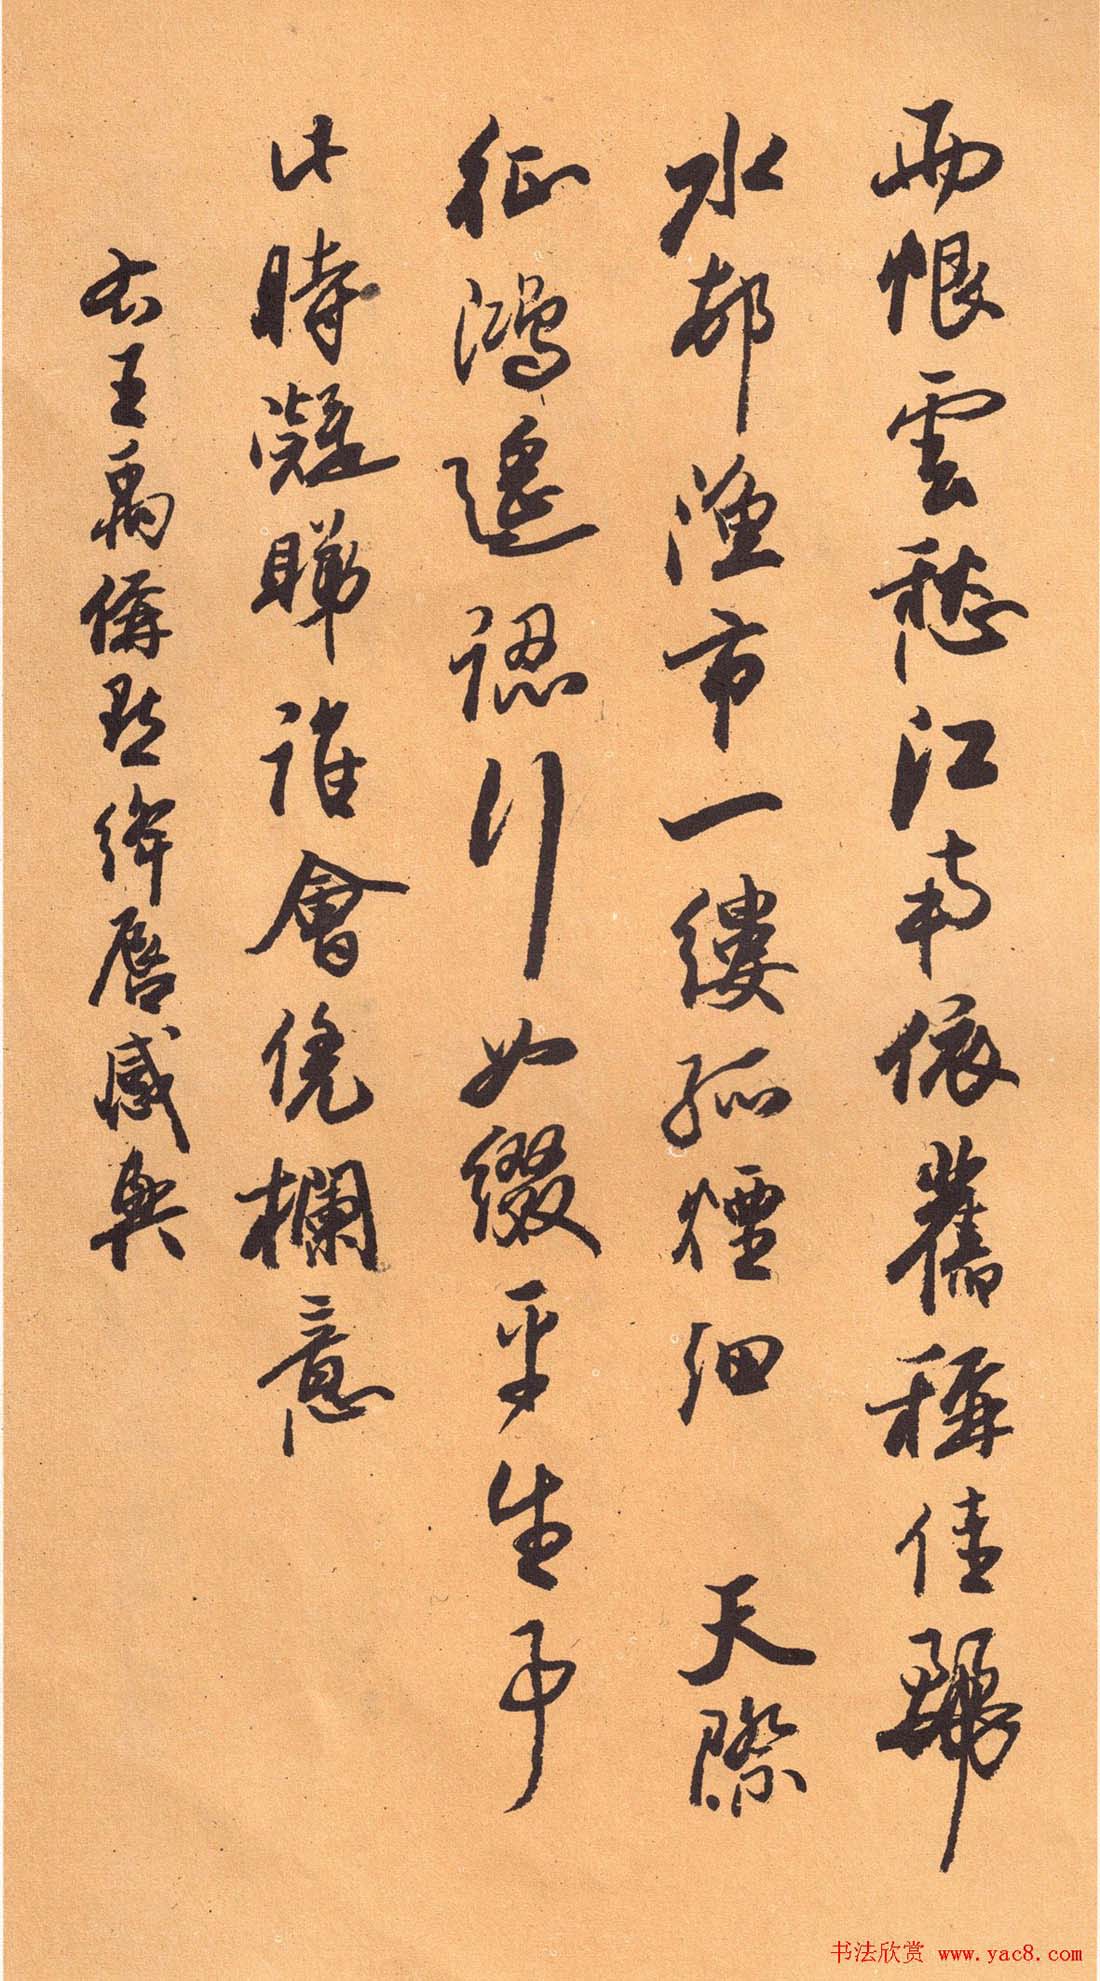 雨恨雲愁江南依舊稱佳麗
水邨漁市一縷孤煙細 天際
征鴻遙認行如綴平生事
此時凝睇誰會凭欄意
右王禹偁點絳唇感興
书法欣赏 www.yac8.com